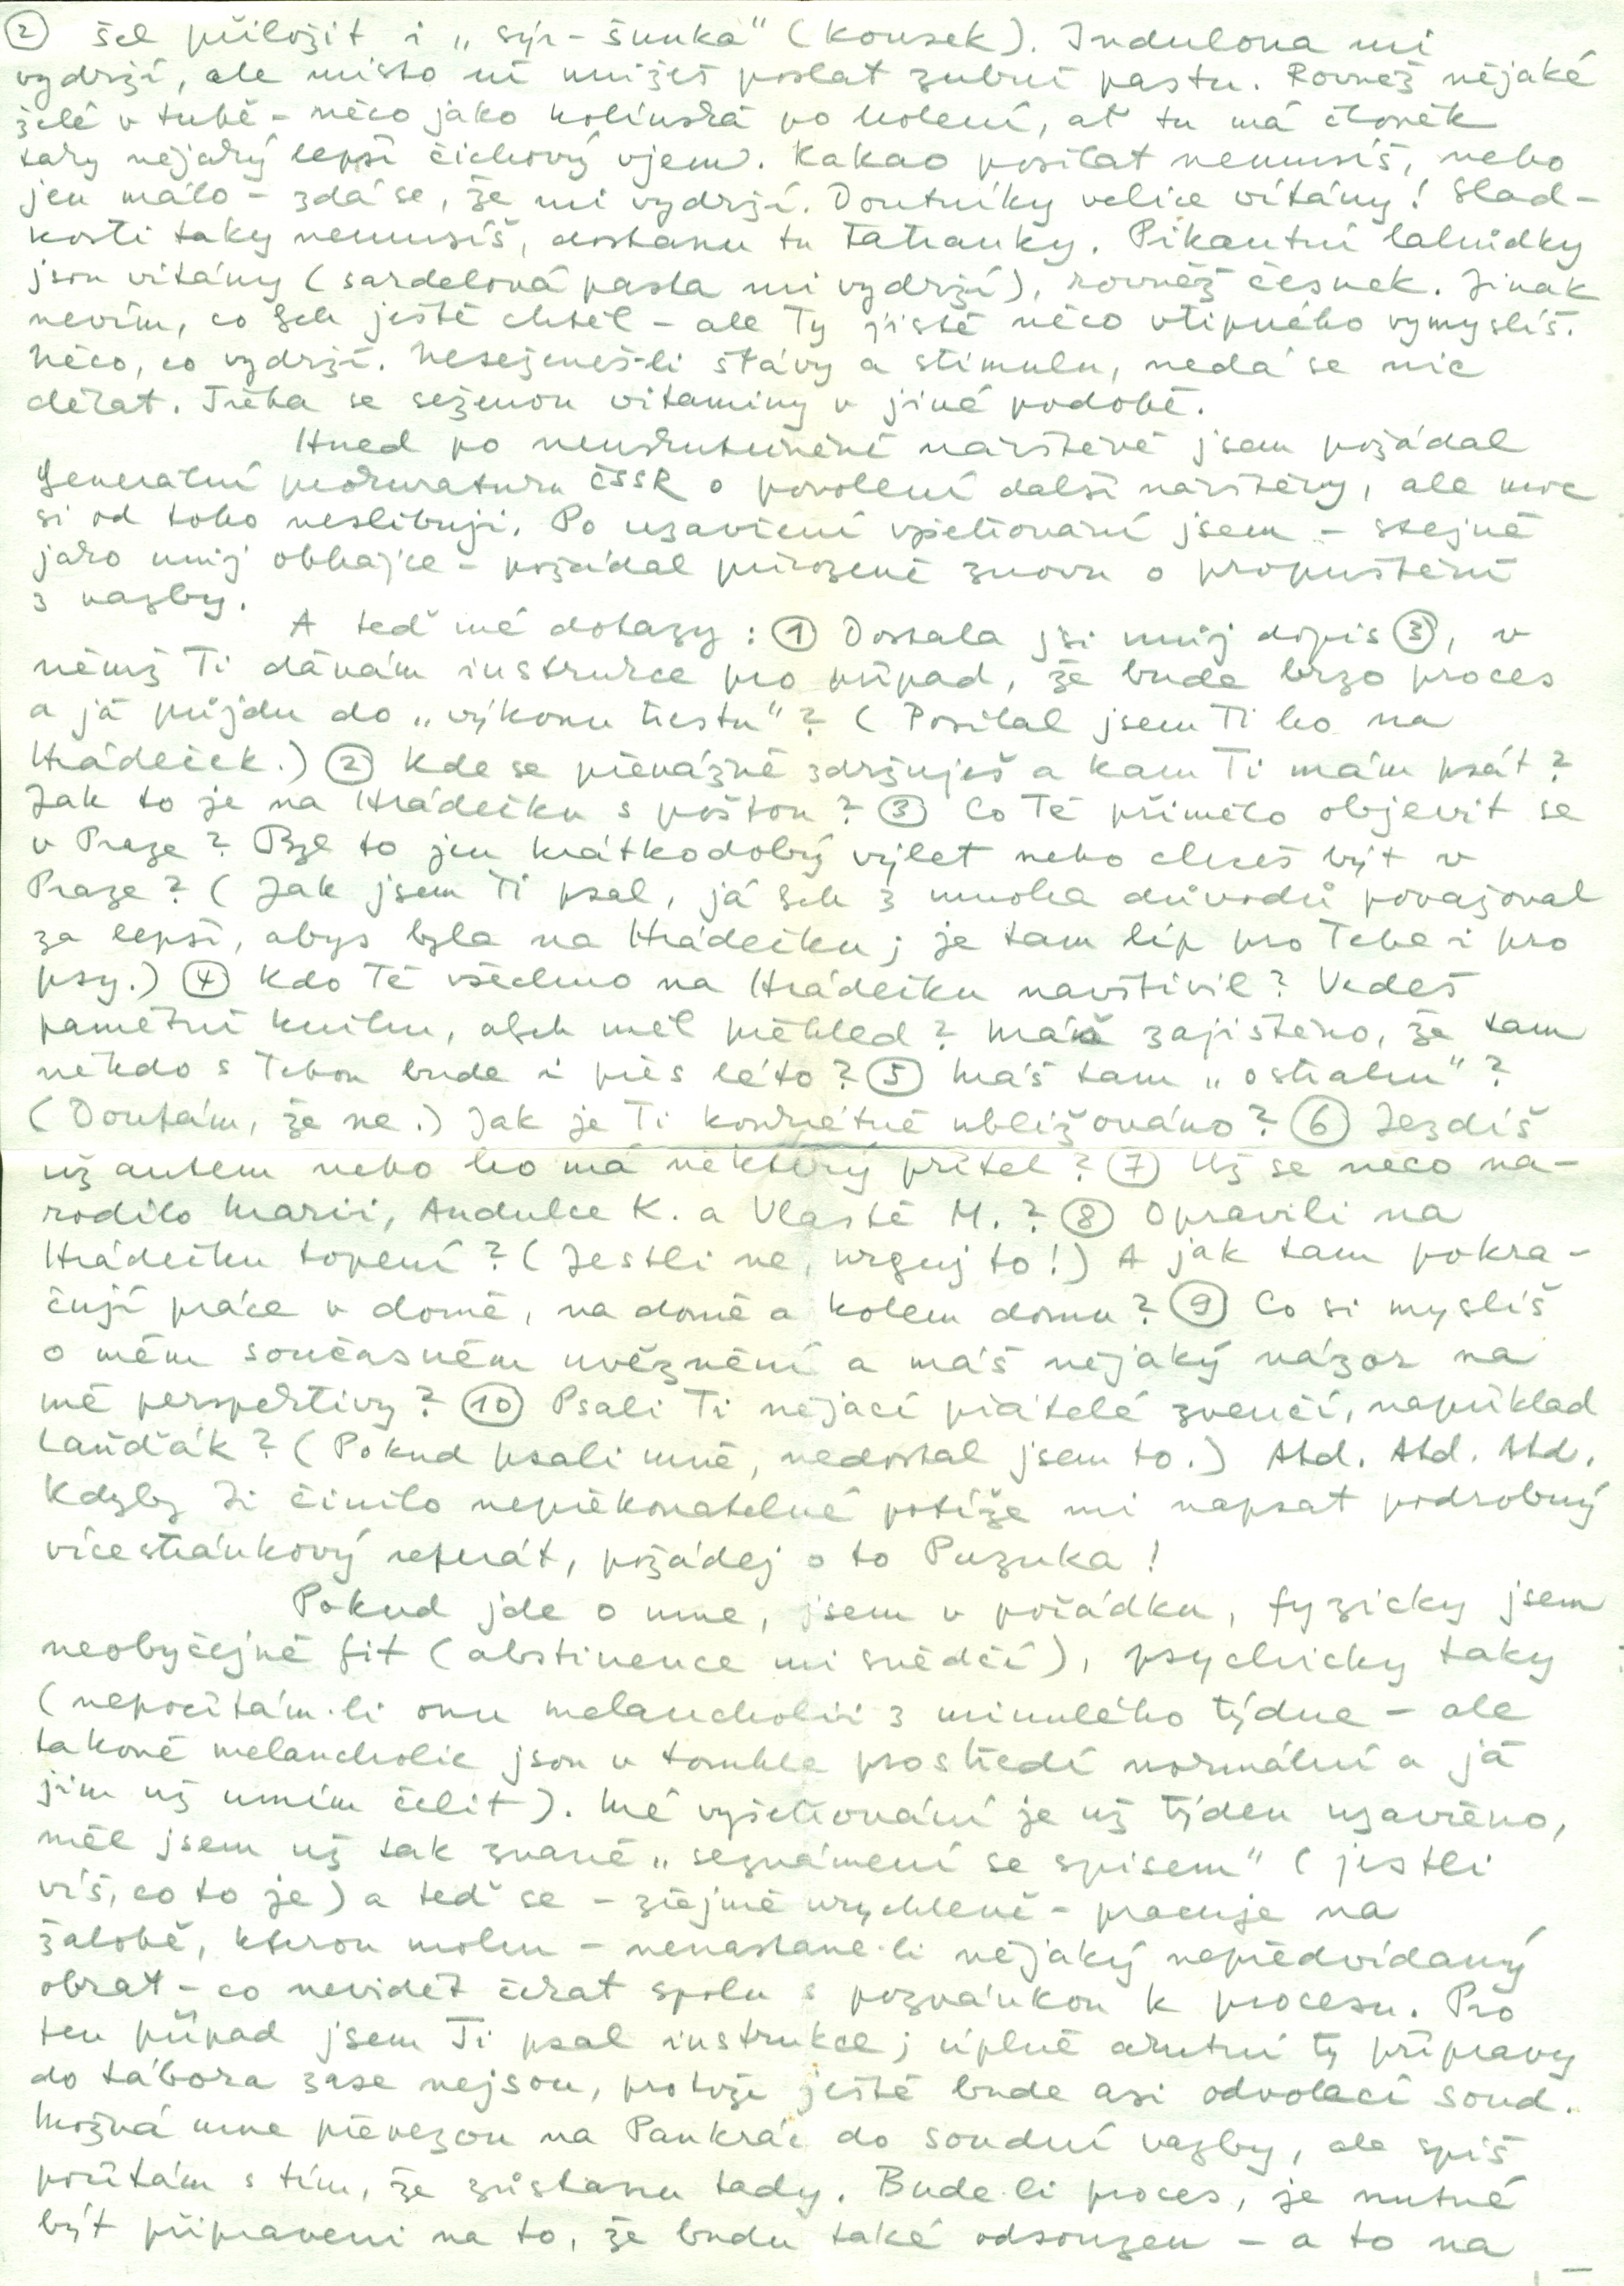 ② šel přiložit i „sýr - šunka" (kousek). Indulona mi
vydrží, ale místo ní můžeš poslat zubní pastu. Rovněž nějaké
želé v tubě - něco jako kolínská po holení, ať tu má člověk
taky nějaký lepší čichový vjem. Kakao posílat nemusíš, nebo
jen málo - zdá se, že mi vydrží. Doutníky velice vítány! Slad-
kosti taky nemusíš, dostanu tu Tatranky. Pikantní lahůdky
jsou vítány (sardelová pasta mi vydrží), rovněž česnek. Jinak
nevím, co bch ještě chtěl - ale Ty jistě něco vtipného vymyslíš.
Něco, co vydrží. Neseženeš-li šťávy a stimulu, nedá se nic
dělat. Třeba se seženou vitaminy v jiné podobě.
Hned po neuskutečněné návštěvě jsem požádal
Generální prokuraturu ČSSR o povolení další návštěvy, ale moc
si od toho neslibuji. Po uzavření vyšetřování jsem - stejně
jako můj obhájce - požádal přirozeně znovu o propuštění
z vazby.
A teď mé dotazy: ① Dostala jsi můj dopis ③, v
němž Ti dávám instrukce pro případ, že bude brzo proces
a já půjdu do „výkonu trestu"? (Posílal jsem Ti ho na
Hrádeček.) ② Kde se převážně zdržuješ a kam Ti mám psát?
Jak to je na Hrádečku s poštou? ③ Co Tě přimělo objevit se
v Praze? Byl to jen krátkodobý výlet nebo chceš být v
Praze? (Jak jsem Ti psal, já bch z mnoha důvodů považoval
za lepší, abys byla na Hrádečku; je tam líp pro Tebe i pro
psy.) ④ Kdo Tě všechno na Hrádečku navštívil? Vedeš
pamětní knihu, abch měl přehled? Máš zajištěno, že tam
někdo s Tebou bude i přes léto? ⑤ Máš tam „ostrahu"?
(Doufám, že ne.) Jak je Ti konkrétně ubližováno? ⑥ Jezdíš
už autem nebo ho má některý přítel? ⑦ Už se něco na-
rodilo Marii, Andulce K. a Vlastě M.? ⑧ Opravili na
Hrádečku topení? (Jestli ne, urguj to!) A jak tam pokra-
čují práce v domě, na domě a kolem domu? ⑨ Co si myslíš
o mém současném uvěznění a máš nějaký názor na
mé perspektivy? ⑩ Psali Ti nějací přátelé zvenčí, například
Landák? (Pokud psali mně, nedostal jsem to.) Atd. Atd. Atd.
Kdyby Ti činilo nepřekonatelné potíže mi napsat podrobný
vícestránkový referát, požádej o to Puzuka!
Pokud jde o mne, jsem v pořádku, fyzicky jsem
neobyčejně fit (abstinence mi svědčí), psychicky taky
(nepočítám-li onu melancholii z minulého týdne - ale
takové melancholie jsou v tomhle prostředí normální a já
jim už umím čelit). Mé vyšetřování je už týden uzavřeno,
měl jsem už tak zvané „seznámení se spisem" (jestli
víš, co to je) a teď se - zřejmě urychleně - pracuje na
žalobě, kterou mohu - nenastane-li nějaký nepředvídaný
obrat - co nevidět čekat spolu s pozvánkou k procesu. Pro
ten případ jsem Ti psal instrukce; úplně akutní ty přípravy
do tábora zase nejsou, protože ještě bude asi odvolací soud.
Možná mne převezou na Pankrác do soudní vazby, ale spíš
počítám s tím, že zůstanu tady. Bude-li proces, je nutné
být připraveni na to, že budu také odsouzen - a to na